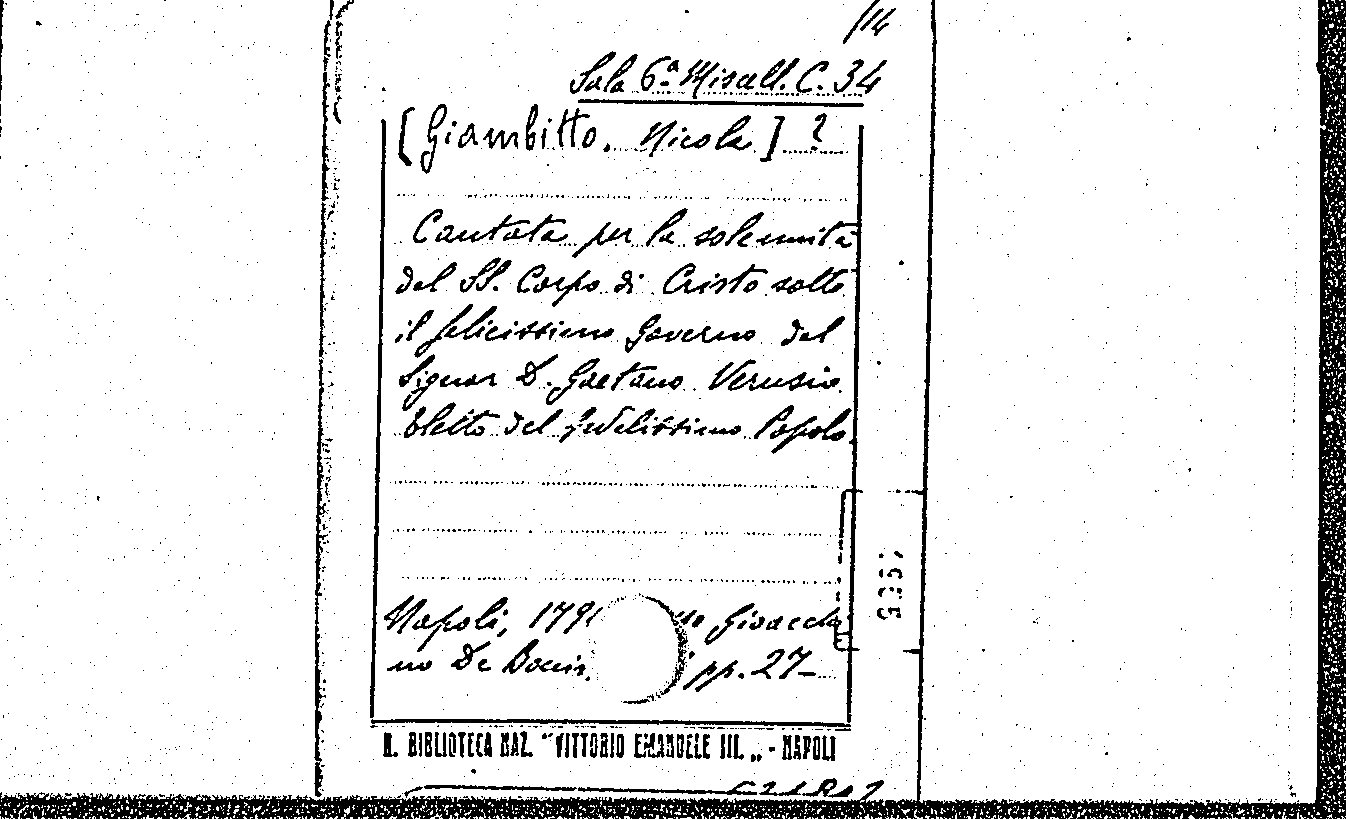 /14
Sala 6ª Miscell. C. 34
[Giambitto. Nicola] ?
Cantata per la solennità
del SS. Corpo di Cristo sotto
il felicissimo Governo del
Signor D. Gaetano Verusio
Eletto del Fedelissimo Popolo.
Napoli, 179
Gioacchi
no De Bonis. pp. 27-
R. BIBLIOTECA NAZ. "VITTORIO EMANUELE III." - NAPOLI